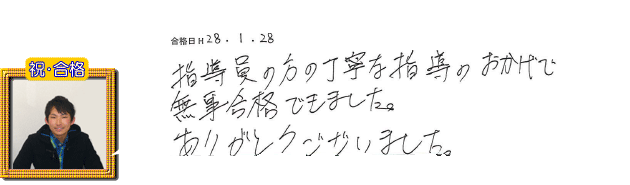 祝・合格
合格日 H 28.1.28
指導員の方の丁寧な指導のおかげで
無事合格できました。
ありがとうございました。